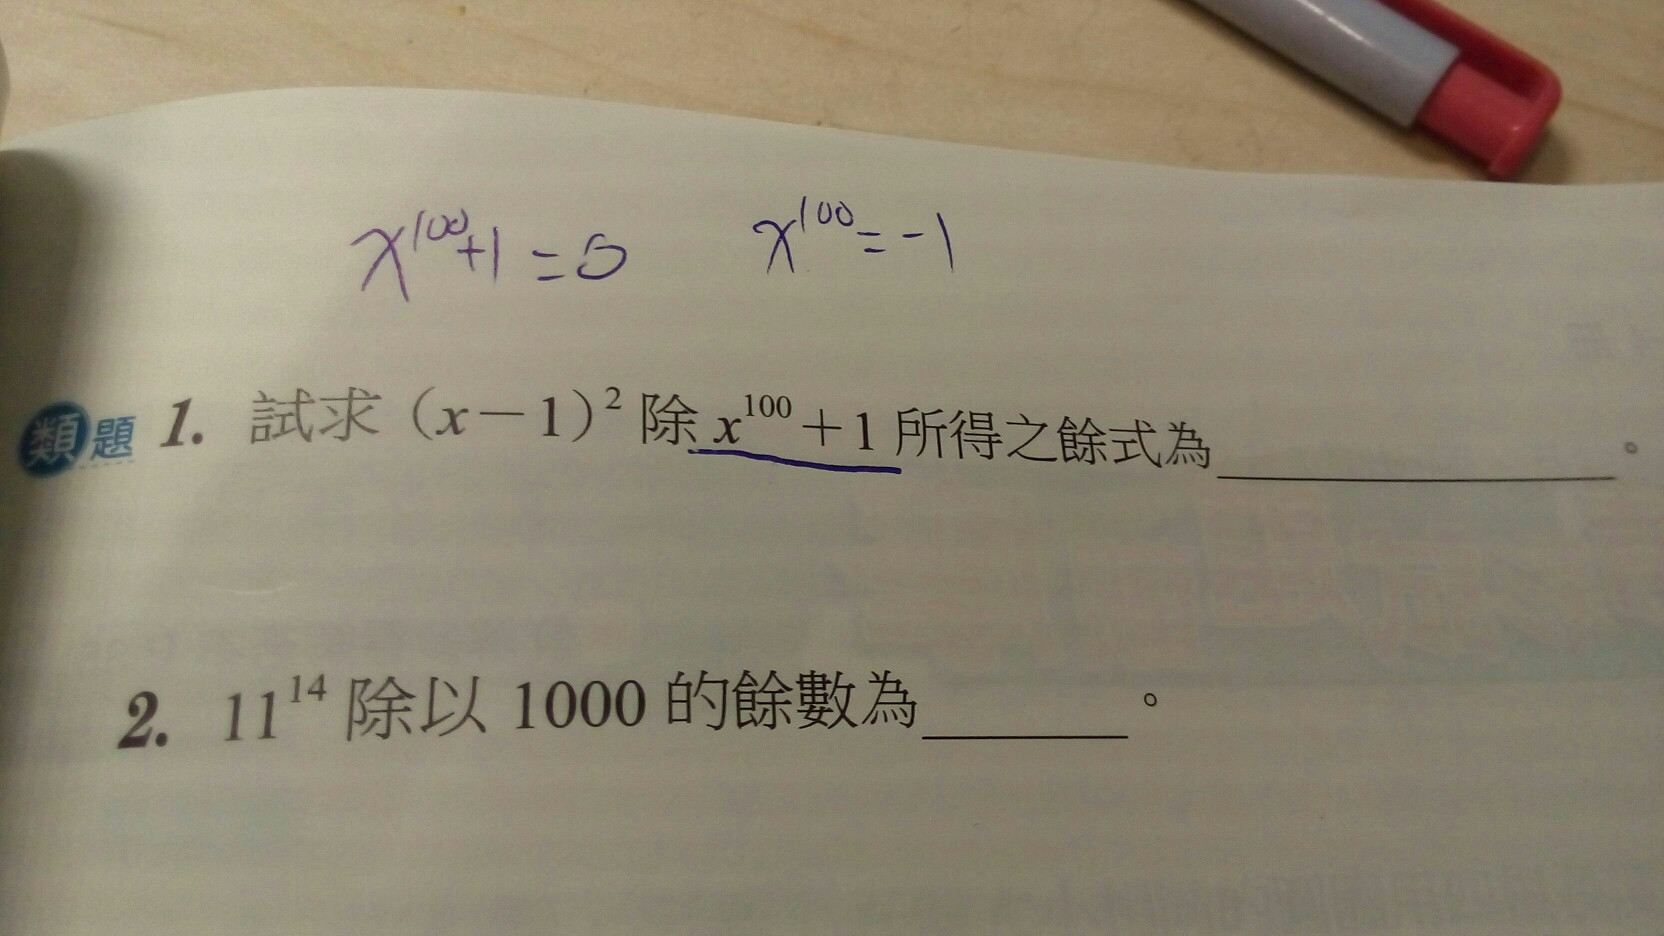 x¹⁰⁰+1=0 x¹⁰⁰=-1
類題 1. 試求（x－1）² 除 x¹⁰⁰＋1 所得之餘式為＿＿＿＿＿＿。
2. 11¹⁴ 除以 1000 的餘數為＿＿＿＿。